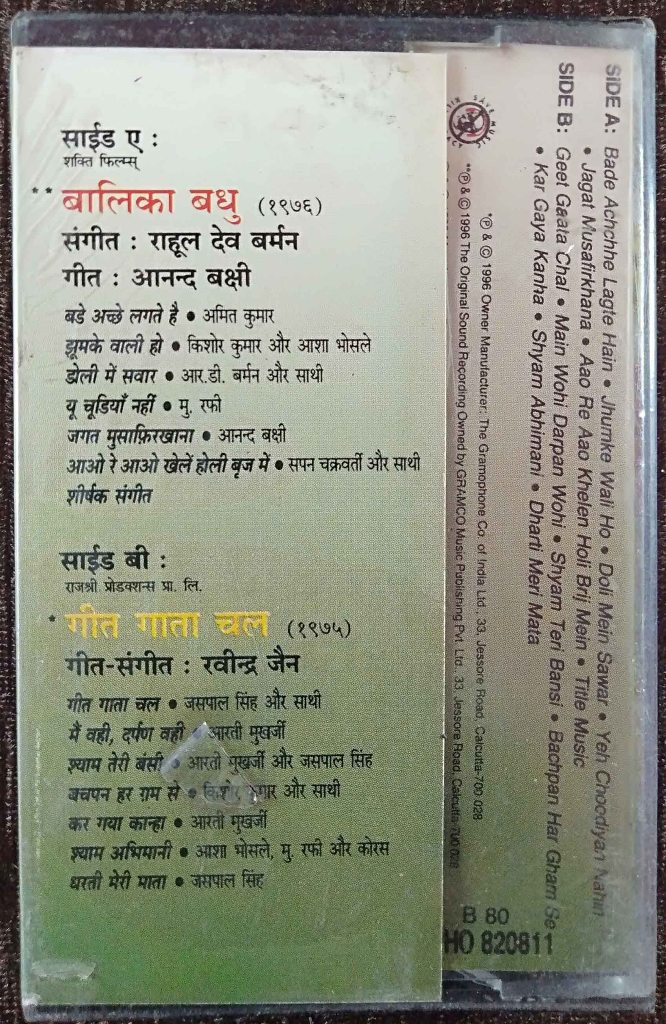 साईड ए :
शक्ति फिल्म्स्
** बालिका बधु (१९७६)
संगीत : राहूल देव बर्मन
गीत : आनन्द बक्षी
बडे अच्छे लगते है • अमित कुमार
झूमके वाली हो • किशोर कुमार और आशा भोसले
डोली में सवार • आर.डी. बर्मन और साथी
यू चूडियाँ नहीं • मु. रफी
जगत मुसाफ़िरखाना • आनन्द बक्षी
आओ रे आओ खेलें होली बृज में • सपन चक्रवर्ती और साथी
शीर्षक संगीत
साईड बी :
राजश्री प्रोडक्शन्स प्रा. लि.
* गीत गाता चल (१९७५)
गीत-संगीत : रवीन्द्र जैन
गीत गाता चल • जसपाल सिंह और साथी
मैं वही, दर्पण वही • आरती मुखर्जी
श्याम तेरी बंसी • आरती मुखर्जी और जसपाल सिंह
बचपन हर ग़म से • किशोर कुमार और साथी
कर गया कान्हा • आरती मुखर्जी
श्याम अभिमानी • आशा भोसले, मु. रफी और कोरस
धरती मेरी माता • जसपाल सिंह
SIDE A: Bade Achchhe Lagte Hain • Jhumke Wali Ho • Doli Mein Sawar • Yeh Choodiyan Nahin
• Jagat Musafirkhana • Aao Re Aao Khelen Holi Brij Mein • Title Music
SIDE B: Geet Gaata Chal • Main Wohi Darpan Wohi • Shyam Teri Bansi • Bachpan Har Gham Se
• Kar Gaya Kanha • Shyam Abhimani • Dharti Meri Mata
*℗ & © 1996 Owner Manufacturer: The Gramophone Co. of India Ltd. 33, Jessore Road, Calcutta-700 028
**℗ & © 1996 The Original Sound Recording Owned by GRAMCO Music Publishing Pvt. Ltd. 33, Jessore Road, Calcutta-700 028
B 80
HO 820811